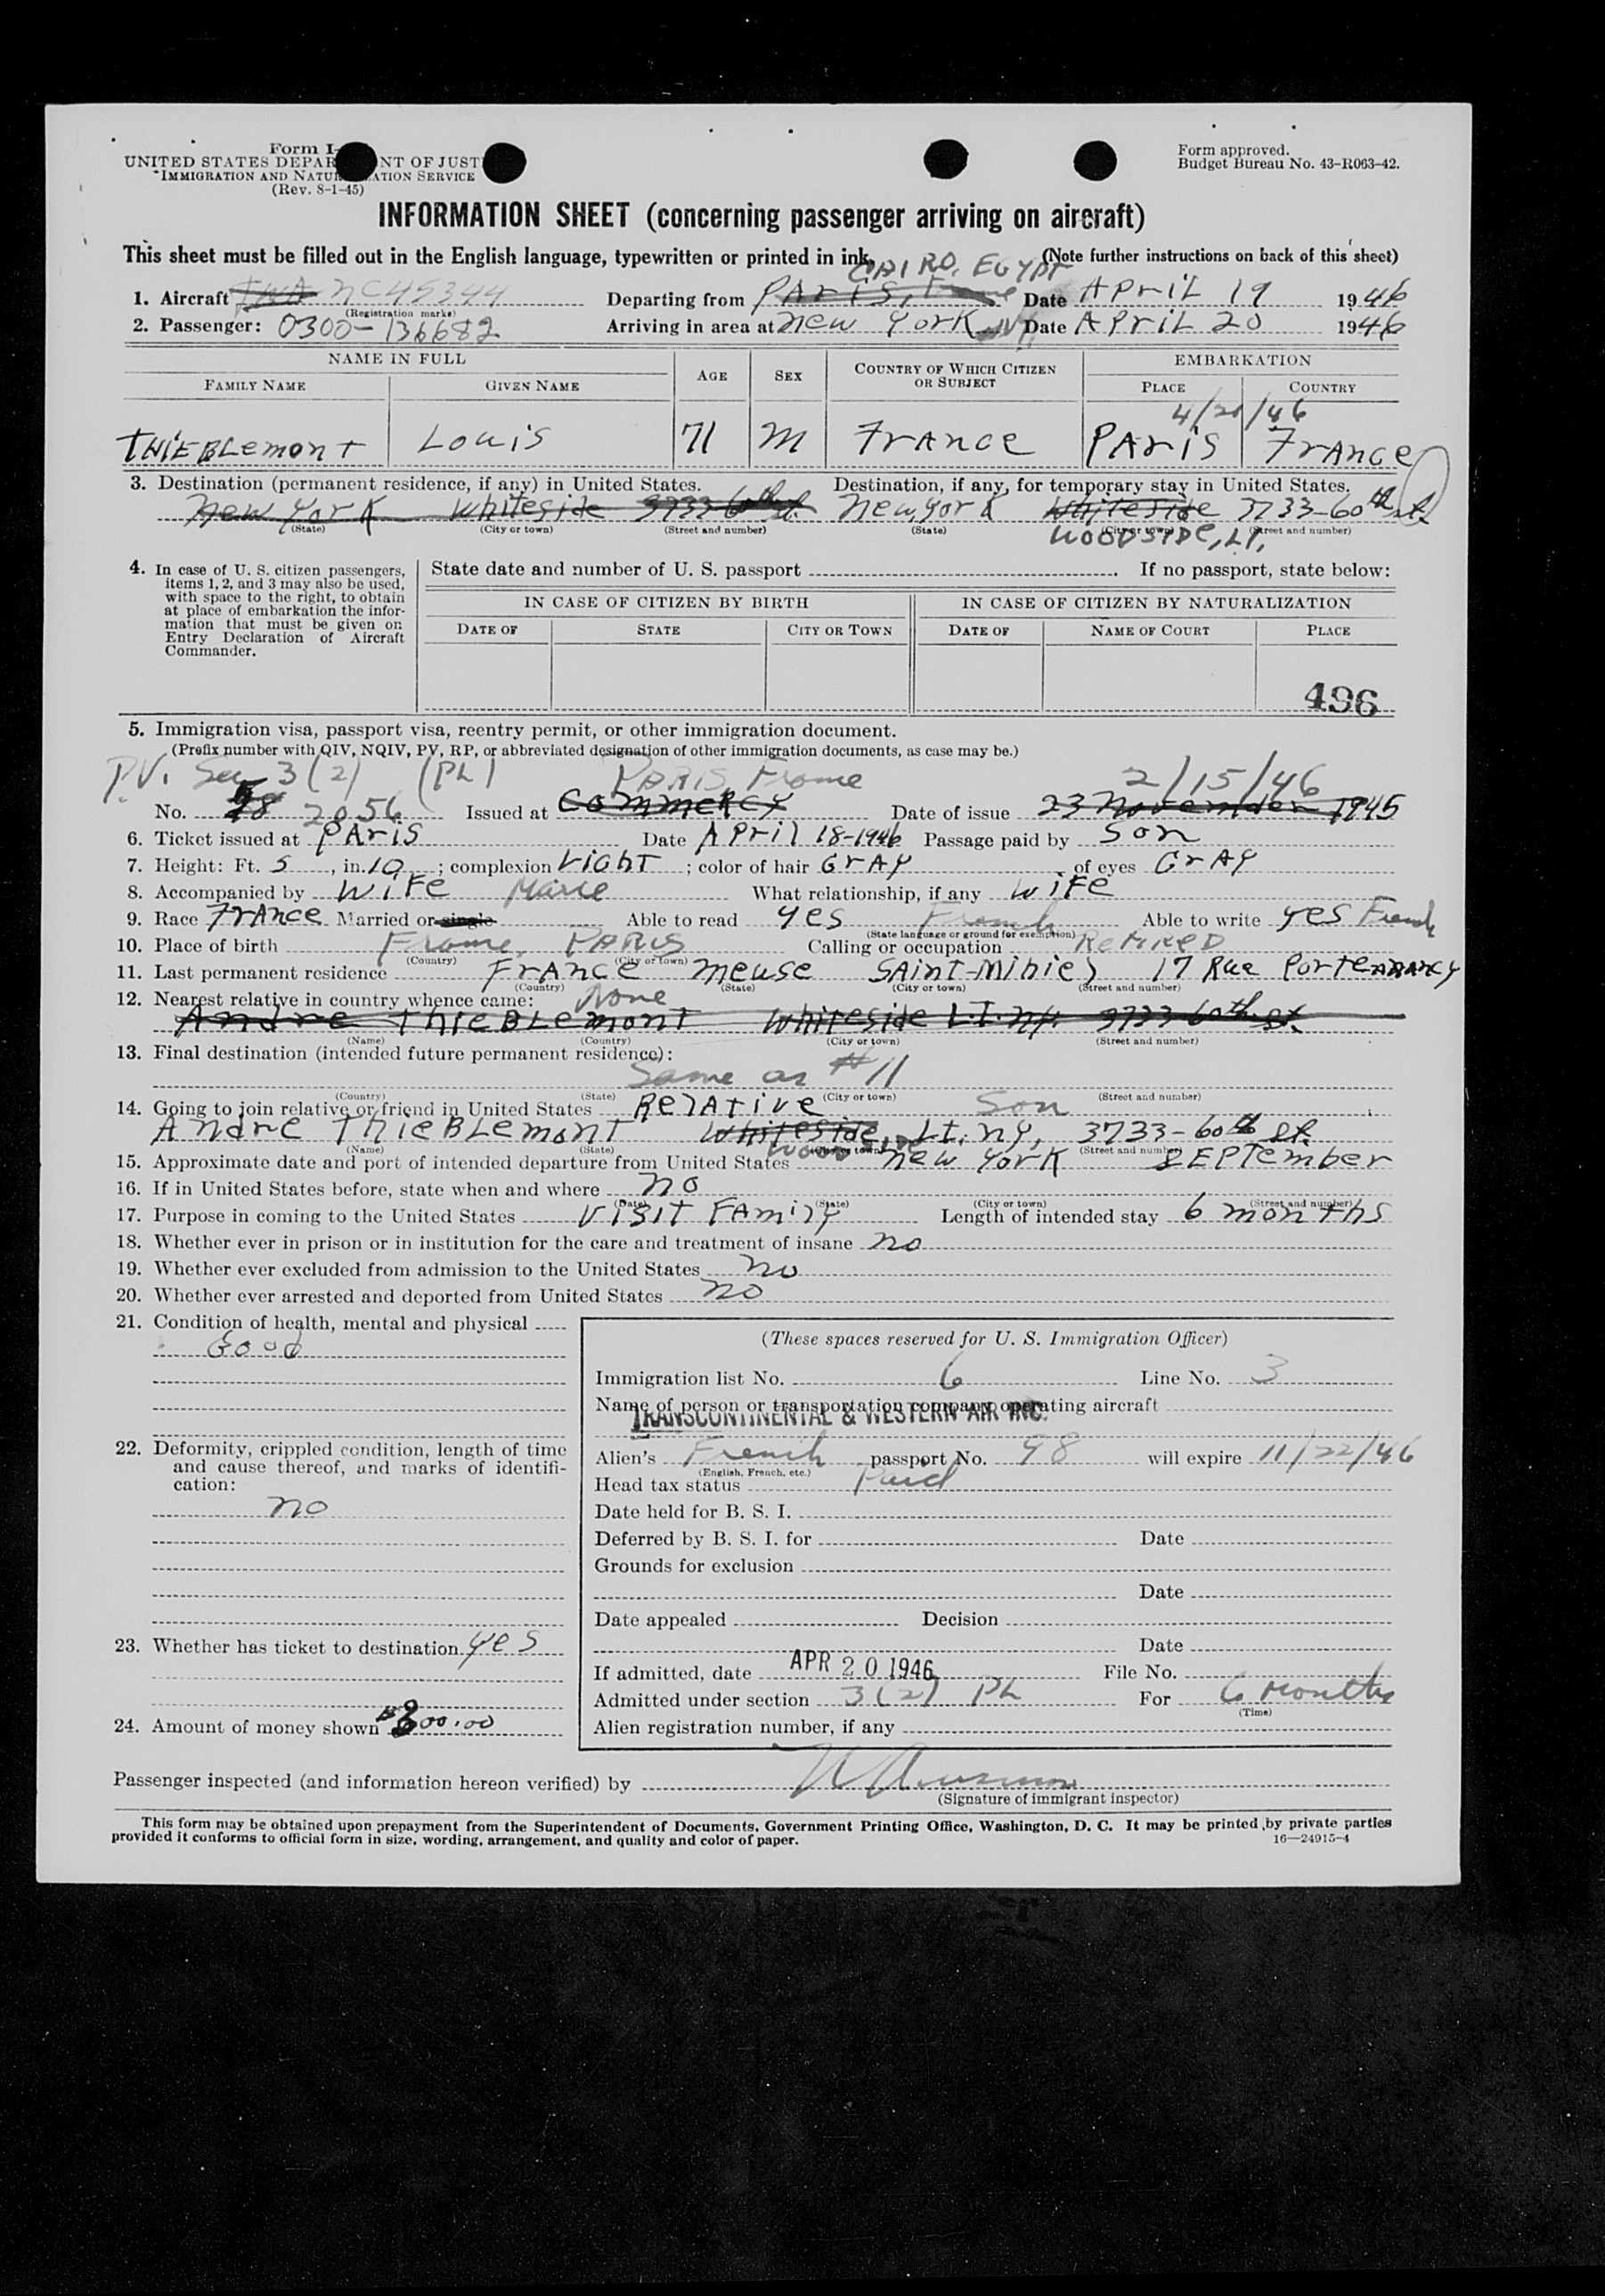 Form I-
UNITED STATES DEPAR NT OF JUST
IMMIGRATION AND NATU ATION SERVICE
(Rev. 8-1-45)
Form approved.
Budget Bureau No. 43-R063-42.
INFORMATION SHEET (concerning passenger arriving on aircraft)
This sheet must be filled out in the English language, typewritten or printed in ink. (Note further instructions on back of this sheet)
CAIRO, EGYPT
1. Aircraft TWA NC45344 Departing from PAriS, France Date APriL 19 1946
(Registration marks)
2. Passenger: 0300-136682 Arriving in area at New York NY Date APriL 20 1946
NAME IN FULL AGE SEX COUNTRY OF WHICH CITIZEN OR SUBJECT EMBARKATION
FAMILY NAME GIVEN NAME PLACE COUNTRY
4/20/46
THIEBLemonT Louis 71 M France PAris France
3. Destination (permanent residence, if any) in United States. Destination, if any, for temporary stay in United States.
New York Whiteside 3733 60th st. New York Whiteside 3733-60th st.
(State) (City or town) (Street and number) (State) (City or town) (Street and number)
WOODSIDE, LI,
4. In case of U. S. citizen passengers, items 1, 2, and 3 may also be used, with space to the right, to obtain at place of embarkation the information that must be given on Entry Declaration of Aircraft Commander.
State date and number of U. S. passport If no passport, state below:
IN CASE OF CITIZEN BY BIRTH IN CASE OF CITIZEN BY NATURALIZATION
DATE OF STATE CITY OR TOWN DATE OF NAME OF COURT PLACE
496
5. Immigration visa, passport visa, reentry permit, or other immigration document.
(Prefix number with QIV, NQIV, PV, RP, or abbreviated designation of other immigration documents, as case may be.)
P.V. Sec 3(2) (PL) PARIS, France 2/15/46
No. 98 2056 Issued at Commercy Date of issue 23 November 1945
6. Ticket issued at PAris Date April 18-1946 Passage paid by Son
7. Height: Ft. 5, in. 10; complexion Light; color of hair GrAY of eyes GrAY
8. Accompanied by WiFe Marie What relationship, if any wiFe
9. Race FrAnce Married or single Able to read yes French Able to write yes French
(State language or ground for exemption)
10. Place of birth France PARIS Calling or occupation RETIRED
(Country) (City or town)
11. Last permanent residence FrAnce Meuse SAint-Mihiel 17 Rue PorteNANCY
(Country) (State) (City or town) (Street and number)
12. Nearest relative in country whence came: None
Andre ThieBLemont Whiteside L.I. NY. 3733 60th St.
(Name) (Country) (City or town) (Street and number)
13. Final destination (intended future permanent residence):
Same as #11
(Country) (State) (City or town) (Street and number)
14. Going to join relative or friend in United States RelAtive Son
Andre ThieBLemont Whiteside, LI. NY, 3733-60th st.
(Name) (State) (City or town) (Street and number)
Woodside
15. Approximate date and port of intended departure from United States New York SEPTember
16. If in United States before, state when and where no
(Date) (State) (City or town) (Street and number)
17. Purpose in coming to the United States VisiT FAmily Length of intended stay 6 months
18. Whether ever in prison or in institution for the care and treatment of insane no
19. Whether ever excluded from admission to the United States no
20. Whether ever arrested and deported from United States no
21. Condition of health, mental and physical
Good
22. Deformity, crippled condition, length of time and cause thereof, and marks of identification:
no
23. Whether has ticket to destination yes
24. Amount of money shown $300.00
(These spaces reserved for U. S. Immigration Officer)
Immigration list No. 6 Line No. 3
Name of person or transportation company operating aircraft
TRANSCONTINENTAL & WESTERN AIR INC.
Alien's French passport No. 98 will expire 11/22/46
(English, French, etc.)
Head tax status Paid
Date held for B. S. I.
Deferred by B. S. I. for Date
Grounds for exclusion
Date
Date appealed Decision
Date
If admitted, date APR 20 1946 File No.
Admitted under section 3(2) PL For 6 Months
(Time)
Alien registration number, if any
Passenger inspected (and information hereon verified) by
(Signature of immigrant inspector)
This form may be obtained upon prepayment from the Superintendent of Documents, Government Printing Office, Washington, D. C. It may be printed by private parties
provided it conforms to official form in size, wording, arrangement, and quality and color of paper. 16—24915-4